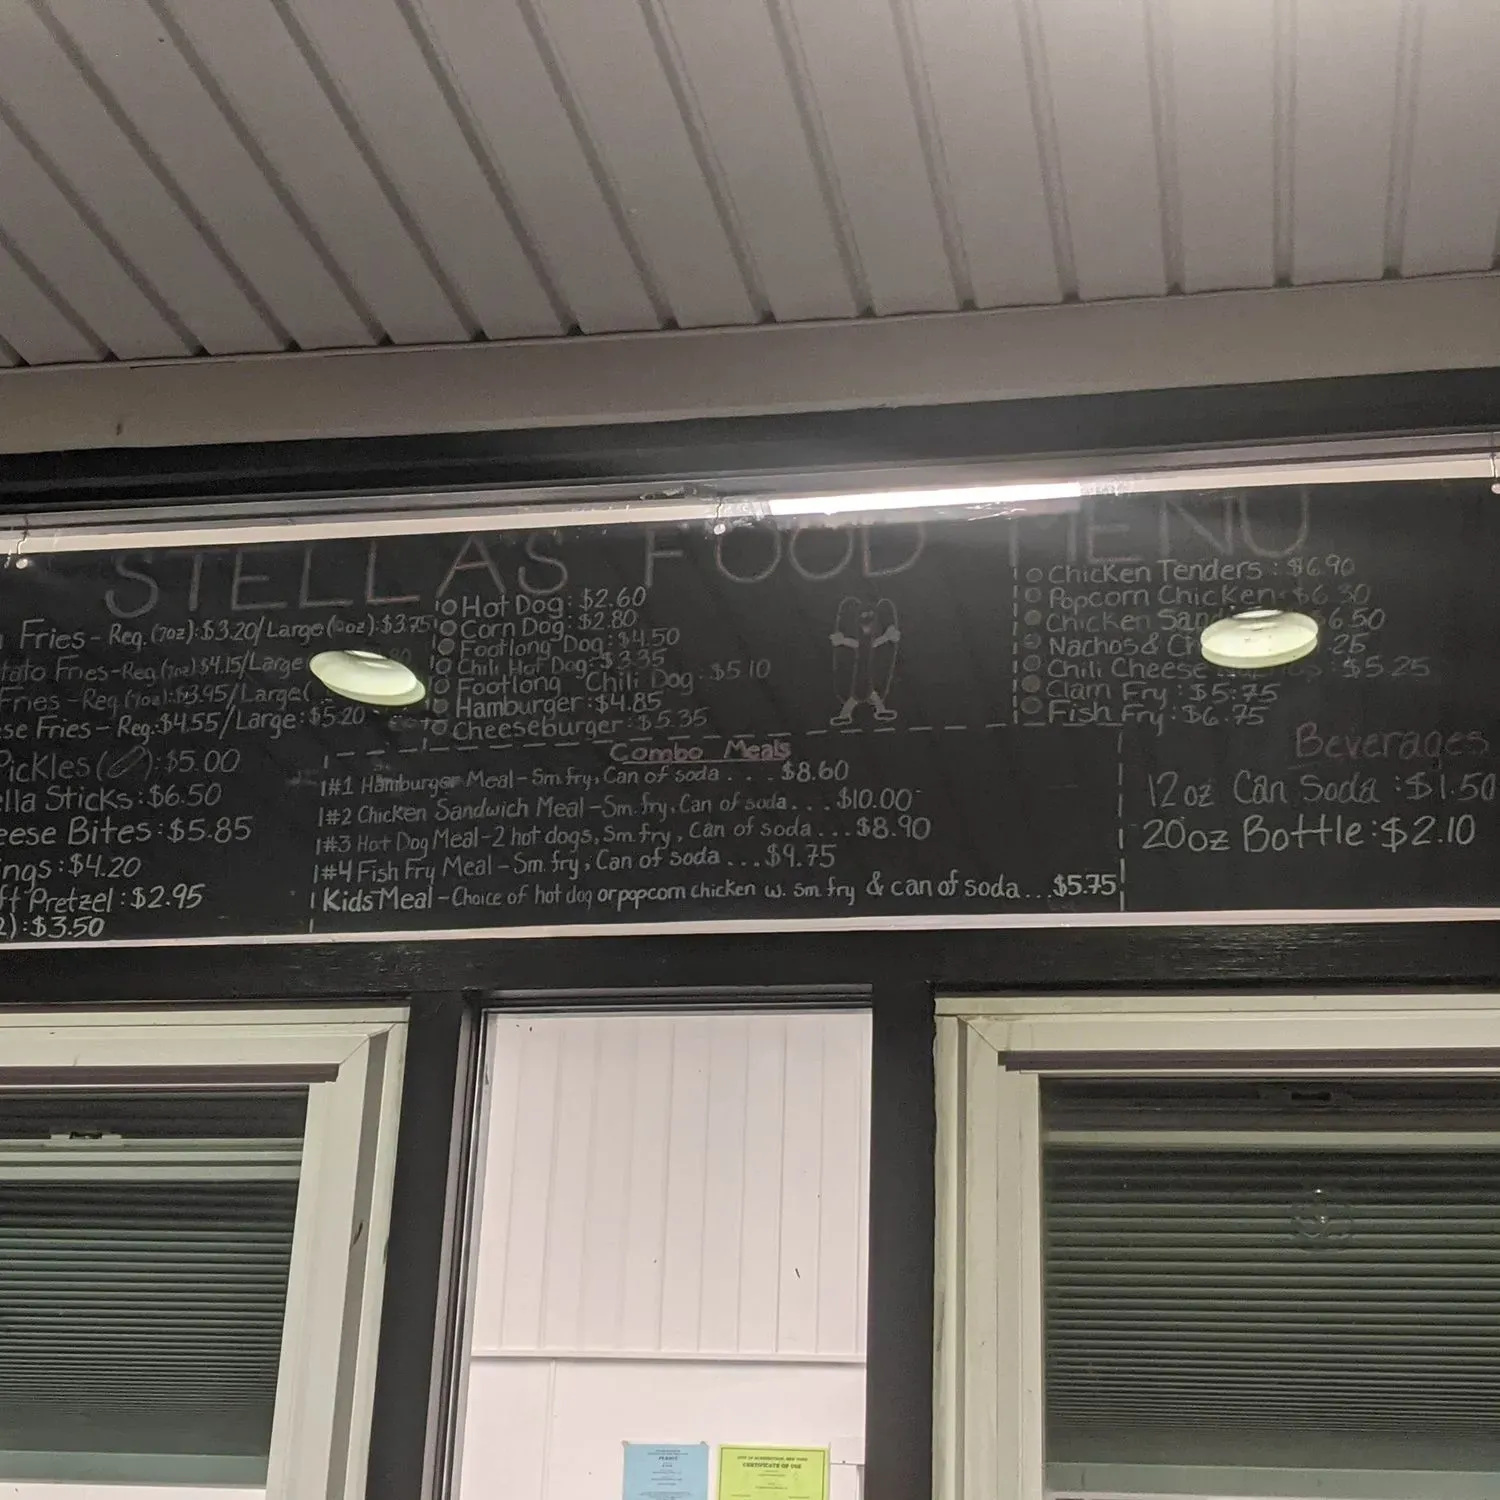 STELLAS FOOD MENU
Fries - Reg. (7oz): $3.20/Large ( oz): $3.75
tato Fries - Reg (7oz) $4.15/Large 80
Fries - Reg $3.95/Large (
se Fries - Reg: $4.55/Large: $5.20
Pickles ( ): $5.00
lla Sticks: $6.50
eese Bites: $5.85
ngs: $4.20
ft Pretzel: $2.95
2): $3.50
Hot Dog: $2.60
Corn Dog: $2.80
Footlong Dog: $4.50
Chili Hot Dog: $3.35
Footlong Chili Dog: $5.10
Hamburger: $4.85
Cheeseburger: $5.35
Chicken Tenders: $6.90
Popcorn Chicken: $6.30
Chicken Sand 6.50
Nachos & Ch .25
Chili Cheese $5.25
Clam Fry: $5.75
Fish Fry: $6.75
Combo Meals
#1 Hamburger Meal - Sm. fry, Can of soda . . . . $8.60
#2 Chicken Sandwich Meal - Sm. fry, Can of soda... $10.00
#3 Hot Dog Meal - 2 hot dogs, Sm. fry, Can of soda... $8.90
#4 Fish Fry Meal - Sm. fry, Can of soda ... $9.75
Kids Meal - Choice of hot dog or popcorn chicken w. sm fry & can of soda... $5.75
Beverages
12oz Can Soda: $1.50
20oz Bottle: $2.10
PERMIT
CERTIFICATE OF USE